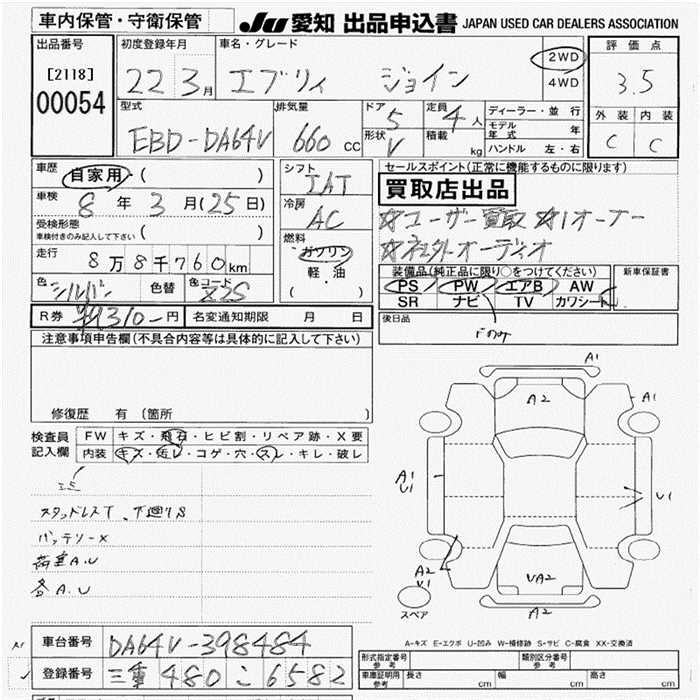 車内保管・守衛保管
JU 愛知 出品申込書 JAPAN USED CAR DEALERS ASSOCIATION
出品番号
[2118]
00054
初度登録年月
22 3月
車名・グレード
エブリィ ジョイン
2WD
4WD
評価点
3.5
外装 内装
C C
型式
EBD-DA64V
排気量
660 cc
ドア
5
形状
V
定員
4人
積載 kg
ディーラー・並行
モデル年式 年
ハンドル 左・右
車歴
自家用・( )
車検
8年 3月(25日)
受検形態
車検付きのみ記入して下さい ( )
走行
8万8千760km
色 シルバー 色替 色コード Z2S
シフト
IAT
冷房
AC
燃料
ガソリン
軽・油
( )
セールスポイント(正常に機能するものに限ります)
買取店出品
☆ユーザー買取 ☆1オーナー
☆社外オーディオ
装備品(純正品に限り○をつけてください)
PS PW エアB AW
SR ナビ TV カワシート
新車保証書
Fのみ
後日品
R券 ¥9310-円 名変通知期限 月 日
注意事項申告欄(不具合内容等は具体的に記入して下さい)
修復歴 有 (箇所 )
検査員
記入欄
FW キズ・飛石・ヒビ割・リペア跡・X要
内装 キズ・汚レ・コゲ・穴・スレ・キレ・破レ
スタッドレスT、下廻りS
バッテリーX
荷室A.U
各A.U
A1
A2
A1
A1
U1
U1
A2
U1
UA2
A2
スペア
A-キズ E-エクボ U-凹み W-補修跡 S-サビ C-腐食 XX-交換済
車台番号 DA64V-398484
登録番号 三重 480 こ 6582
形式指定番号 参考
類別区分番号 参考
車庫証明用 参考 長さ cm 幅 cm 高さ cm